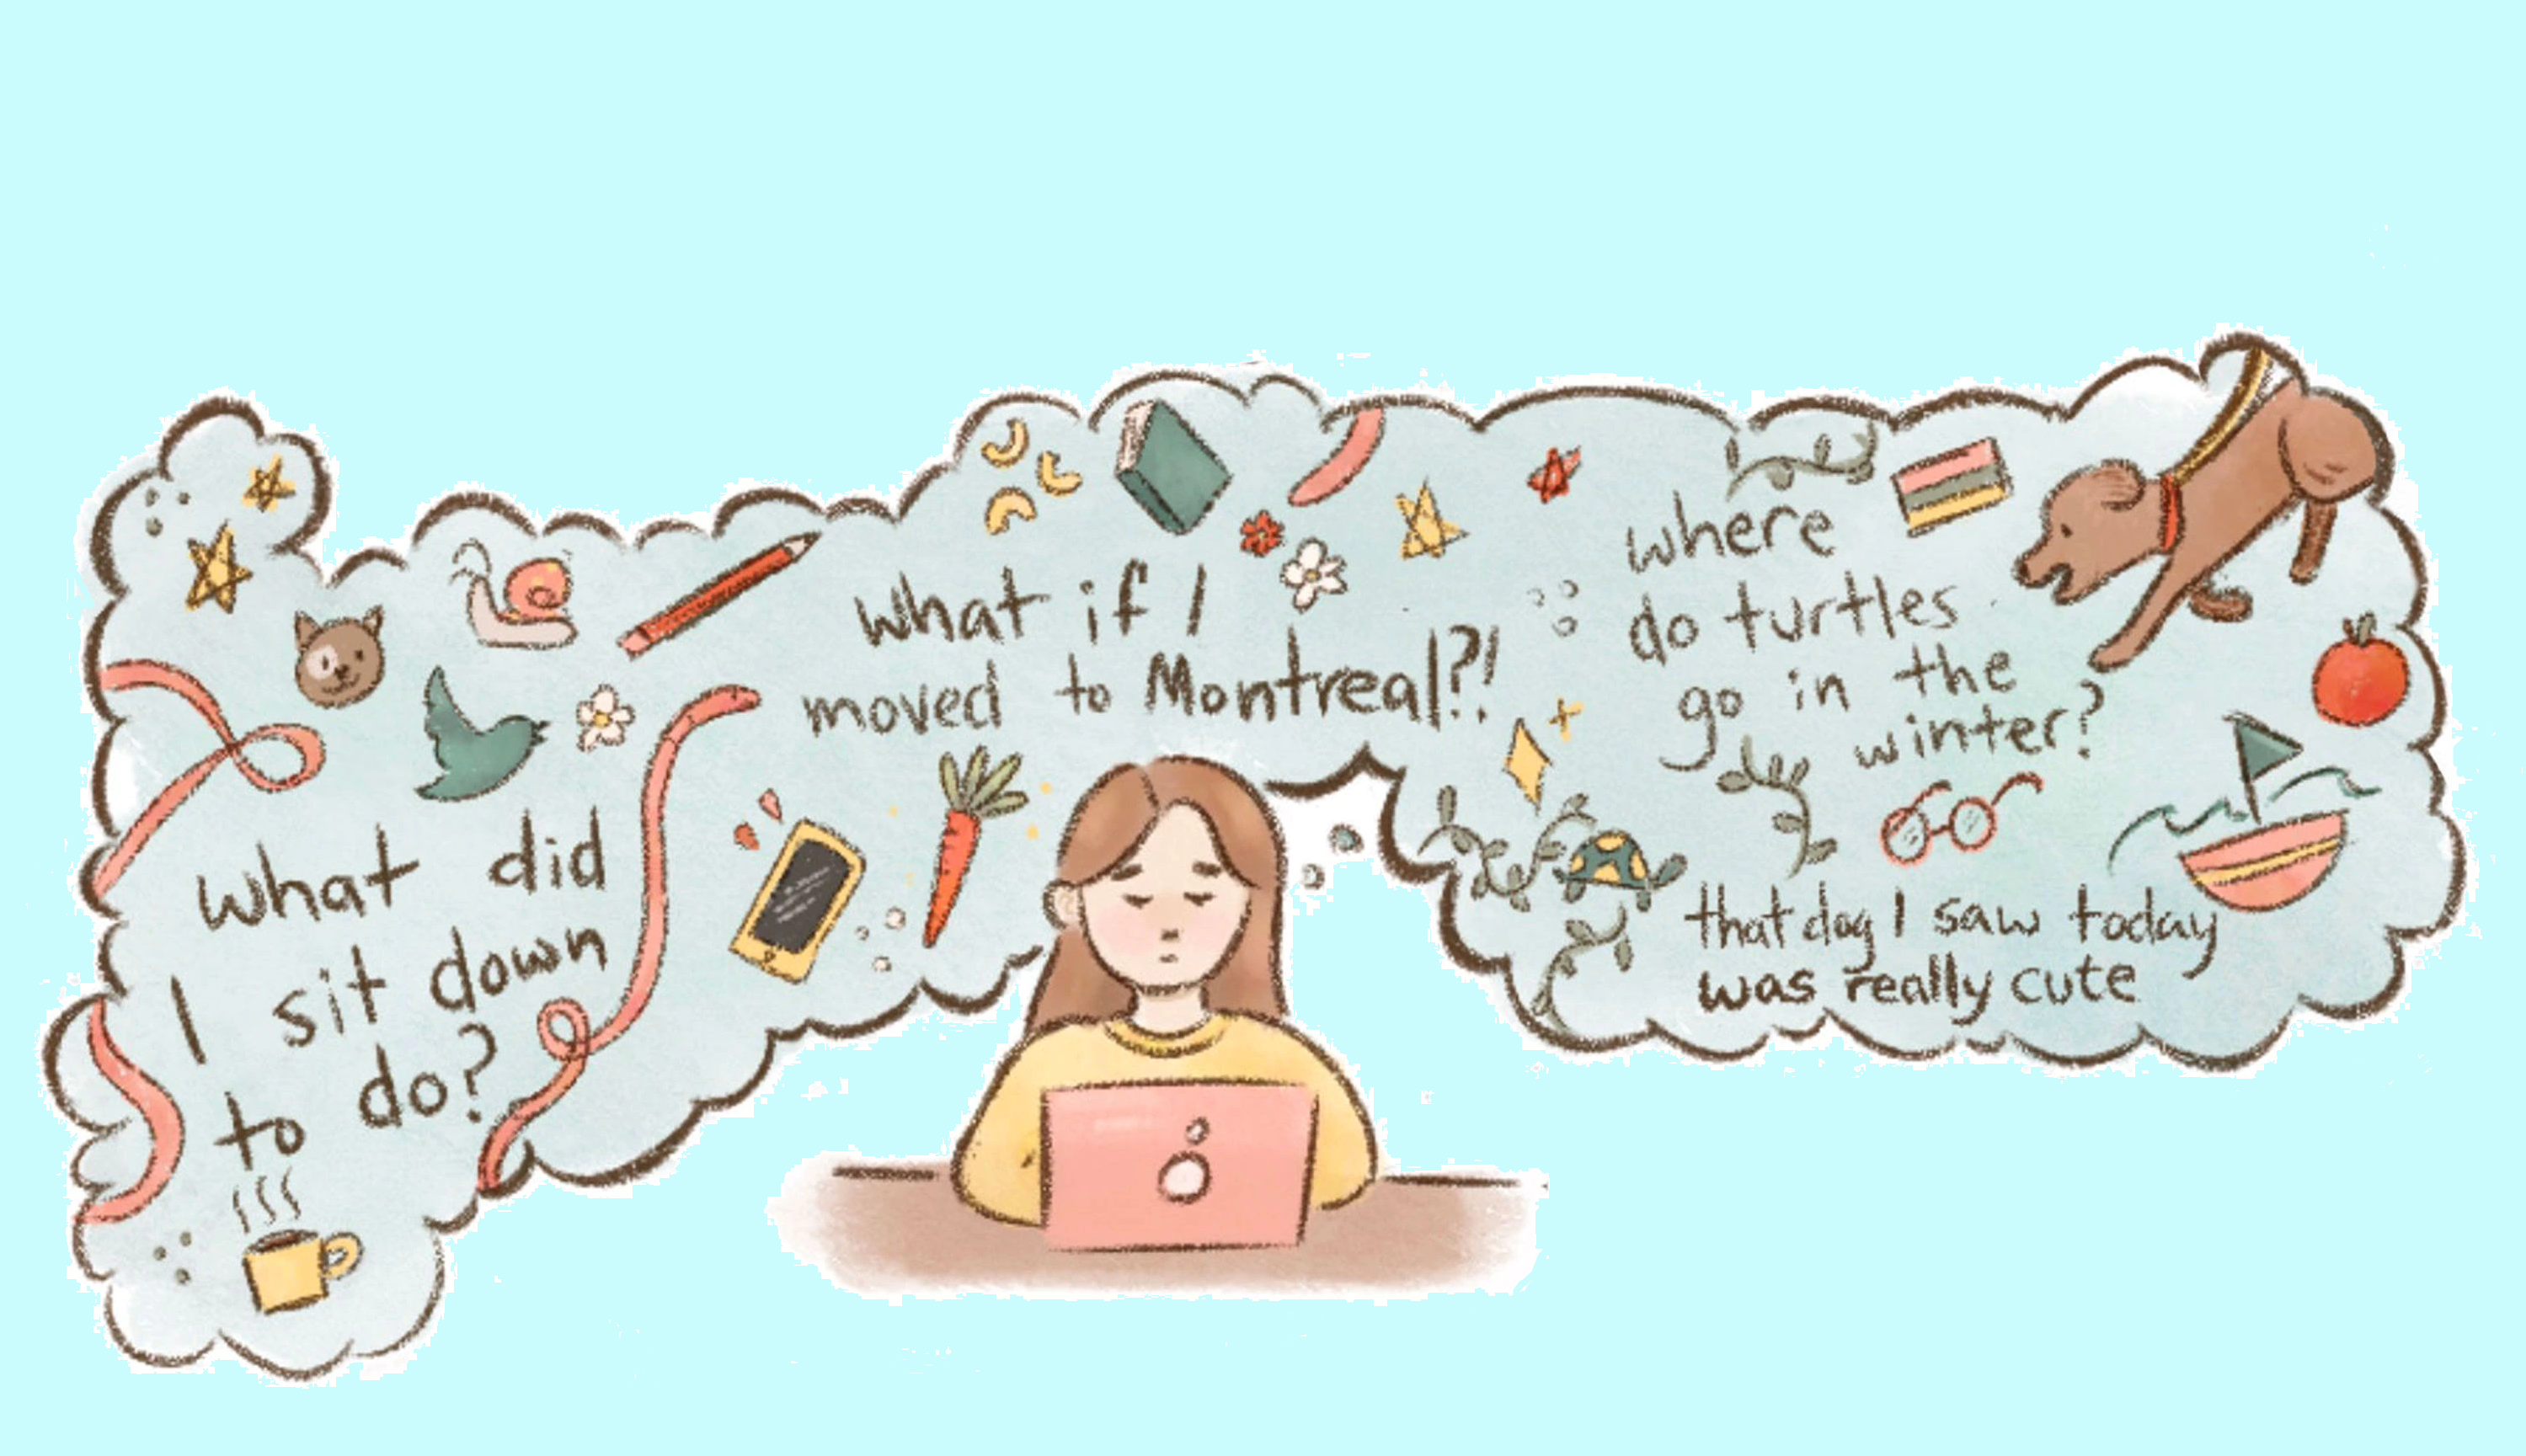 What did
I sit down
to do?
What if I
moved to Montreal?!
where
do turtles
go in the
winter?
that dog I saw today
was really cute